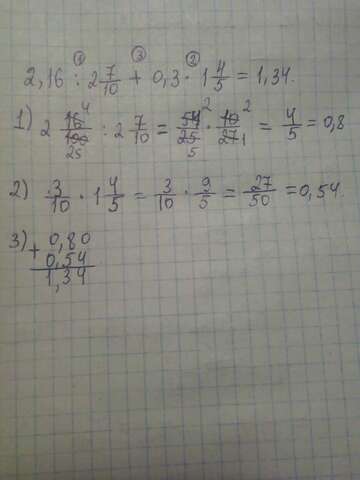 ① ③ ②
2,16 : 2 7/10 + 0,3 · 1 4/5 = 1,34.
1) 2 16⁴/100 25 : 2 7/10 = 54²/25 5 · 10²/27 1 = 4/5 = 0,8
2) 3/10 · 1 4/5 = 3/10 · 9/5 = 27/50 = 0,54.
3) + 0,80
0,54
1,34